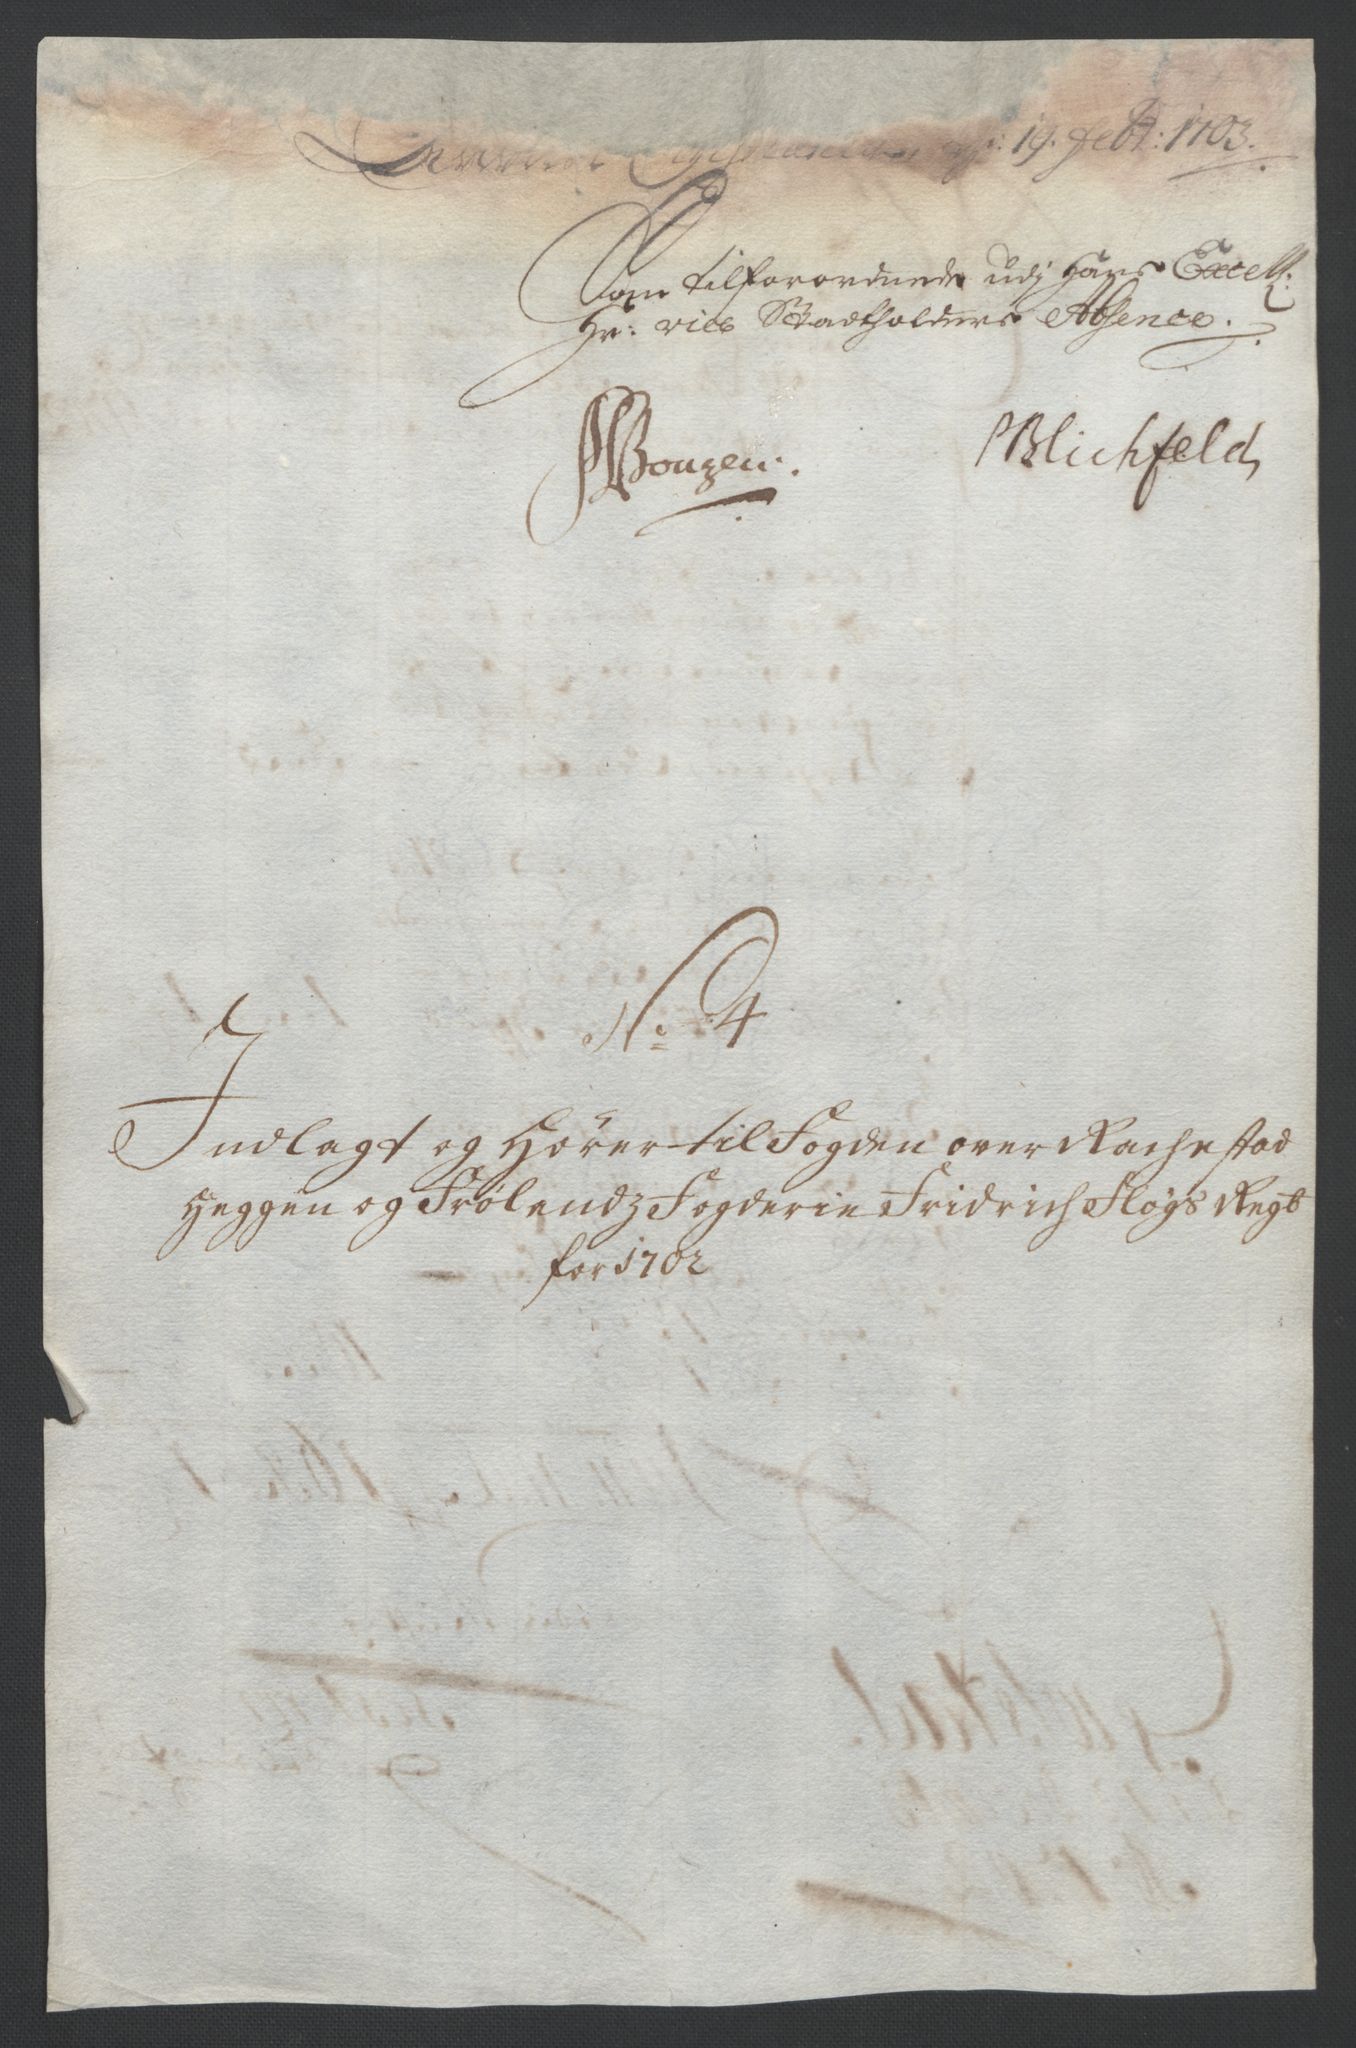 19. febr: 1703.
Som tilforordnede udj Hans Excell:
Hr: vice Stadtholders Absence.
Bouzen. PBlichfeld
No 4
Indlagt og Hörer til Fogden over Rachestad
Heggen og Frölendz Fogderie Fridrich Fløgs Regb
for 1702